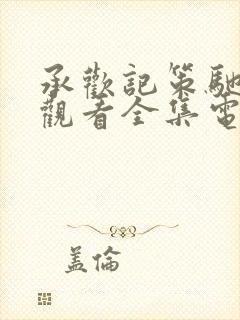 承歡記策馳
觀看全集電
盖倫